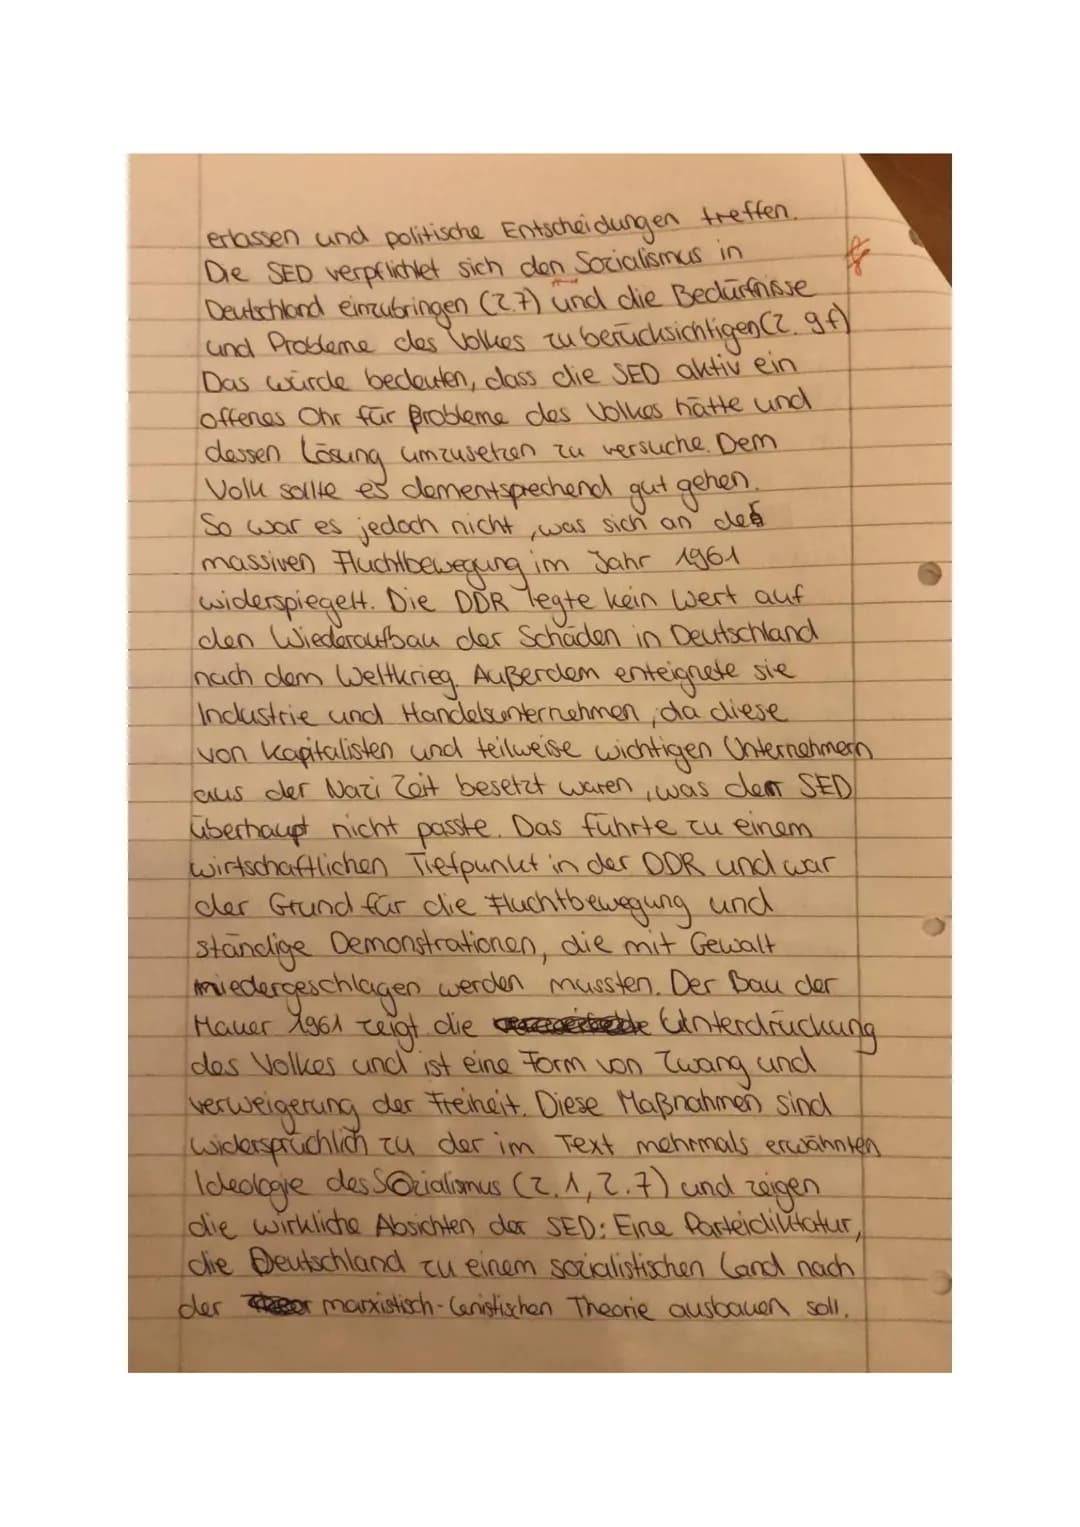 erlassen und politische Entscheidungen treffen.
Die SED verpflichtet sich den Sozialismus in
Deutschland einzubringen (Z.7) und die Bedürfnisse
und Probleme des Volkes zu berücksichtigen (Z. 9f)
Das würde bedeuten, dass die SED aktiv ein
offenes Ohr für Probleme des Volkes hätte und
dessen Lösung umzusetzen zu versuche. Dem
Volk sollte es dementsprechend gut gehen.
So war es jedoch nicht, was sich an der
massiven Fluchtbewegung im Jahr 1961
widerspiegelt. Die DDR legte kein Wert auf
den Wiederaufbau der Schäden in Deutschland
nach dem Weltkrieg. Außerdem enteignete sie
Industrie und Handelsunternehmen, da diese
von Kapitalisten und teilweise wichtigen Unternehmern
aus der Nazi Zeit besetzt waren, was der SED
überhaupt nicht passte. Das führte zu einem
wirtschaftlichen Tiefpunkt in der DDR und war
der Grund für die Fluchtbewegung und
ständige Demonstrationen, die mit Gewalt
niedergeschlagen werden mussten. Der Bau der
Mauer 1961 zeigt die Unterdrückung
des Volkes und ist eine Form von Zwang und
verweigerung der Freiheit. Diese Maßnahmen sind
widersprüchlich zu der im Text mehrmals erwähnten
Ideologie des Sozialismus (Z.1, Z.7) und zeigen
die wirkliche Absichten der SED: Eine Parteidiktatur,
die Deutschland zu einem sozialistischen Land nach
der marxistisch-lenistischen Theorie ausbauen soll.